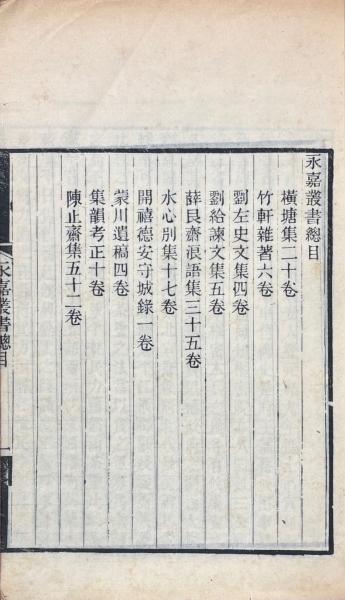 永嘉叢書總目
橫塘集二十卷
竹軒雜著六卷
劉左史文集四卷
劉給諫文集五卷
薛艮齋浪語集三十五卷
水心別集十七卷
開禧德安守城錄一卷
蒙川遺稿四卷
集韻考正十卷
陳止齋集五十二卷
永嘉叢書總目
一